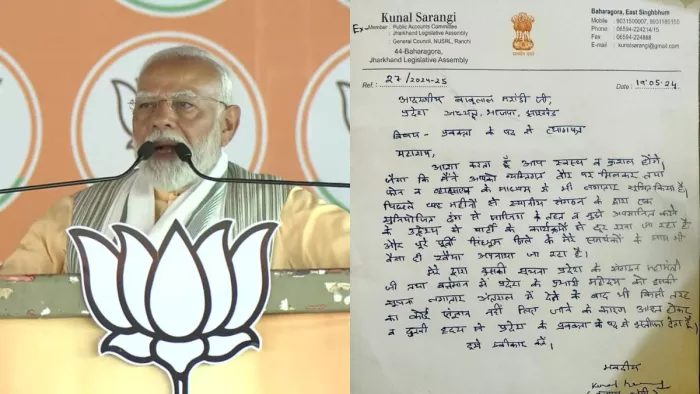 Kunal Sarangi
Ex-
Member : Public Accounts Committee
Jharkhand Legislative Assembly
: General Council, NUSRL, Ranchi
44-Baharagora,
Jharkhand Legislative Assembly
Baharagora, East Singhbhum
Mobile : 9031500007, 8931180150
Phone : 06594-224214/15
Fax : 06594-224888
E-mail : kunalsarangi@gmail.com
Ref.: 27/2024-25
Date: 19.05.24
आदरणीय बाबूलाल मरांडी जी,
प्रदेश अध्यक्ष, भाजपा, झारखंड
विषय - प्रवक्ता के पद से त्यागपत्र
महाशय,
आशा करता हूँ आप स्वस्थ व कुशल होंगे,
जैसा कि मैंने आपको व्यक्तिगत तौर पर मिलकर तथा
फोन व व्हाट्सएप के माध्यम से भी लगातार सूचित किया है,
पिछले कई महीनों से स्थानीय संगठन के द्वारा एक
सुनियोजित ढंग से साजिश के तहत व मुझे अपमानित करने
के उद्देश्य से पार्टी के कार्यक्रमों से दूर रखा जा रहा है
और पूरे पूर्वी सिंहभूम जिले के मेरे समर्थकों के साथ भी
वैसा ही रवैया अपनाया जा रहा है।
मेरे द्वारा इसकी सूचना प्रदेश के संगठन महामंत्री
जी तथा वर्तमान में प्रदेश के प्रभारी महोदय को इसकी
सूचना लगातार अंतराल में देने के बाद भी किसी तरह
का कोई संज्ञान नहीं लिए जाने के कारण आहत होकर
व दुखी हृदय से प्रदेश के प्रवक्ता के पद से इस्तीफा देता हूँ,
इसे स्वीकार करें।
भवदीय